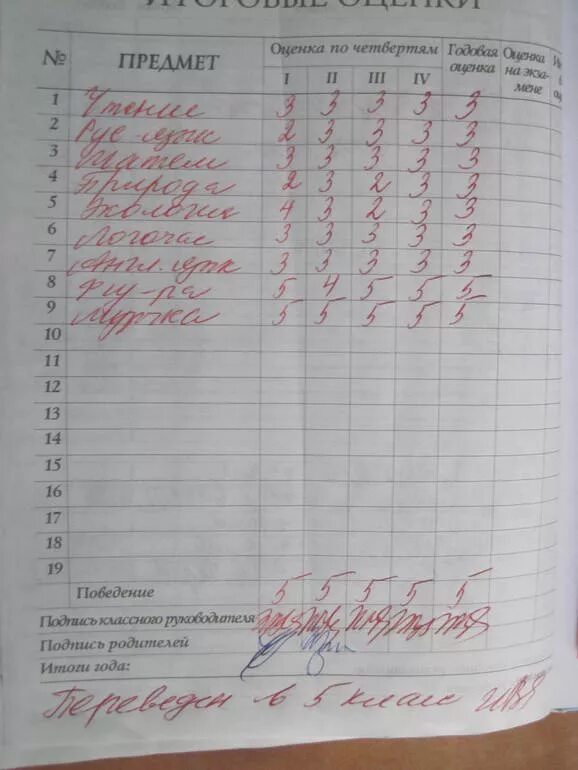 ИТОГОВЫЕ ОЦЕНКИ
№ ПРЕДМЕТ Оценка по четвертям Годовая оценка Оценка на экзамене
I II III IV
1 Чтение 3 3 3 3 3
2 Рус. язык 2 3 3 3 3
3 Матем 3 3 3 3 3
4 Природа 2 3 2 3 3
5 Экология 4 3 2 3 3
6 3 3 3 3 3
7 Англ. язык 3 3 3 3 3
8 Физ-ра 5 4 5 5 5
9 Музыка 5 5 5 5 5
10
11
12
13
14
15
16
17
18
19
Поведение 5 5 5 5 5
Подпись классного руководителя
Подпись родителей
Итоги года:
Переведен в 5 класс